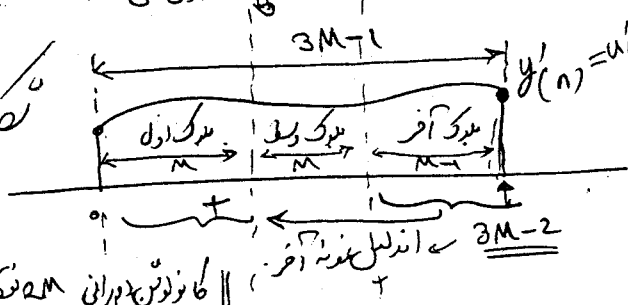 3M-1
y'(n) = u'
بلوک اول بلوک وسط بلوک آخر
M M M-1
0 + اندیس نمونه آخر 3M-2
+
کانولوشن دورانی 2M نقطه